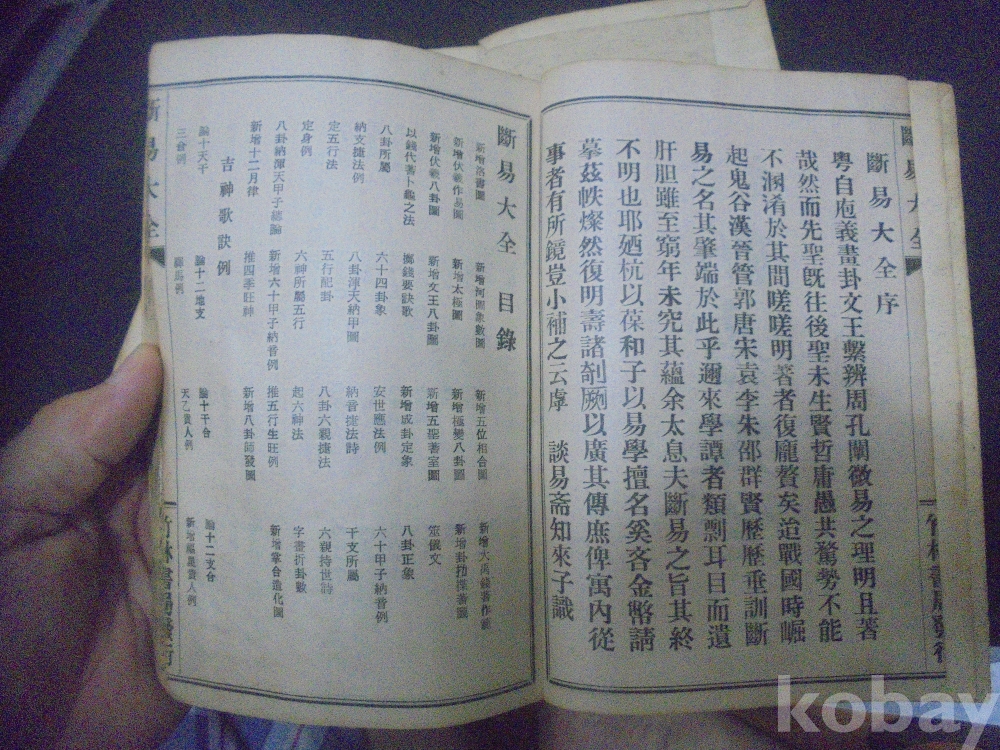 斷易大全
斷易大全序
粵自庖羲畫卦文王繫辨周孔闡微易之理明且著
哉然而先聖旣往後聖未生賢哲庸愚共驁勢不能
不溷淆於其間嗟嗟明著者復龐贅矣迨戰國時崛
起鬼谷漢晉管郭唐宋袁李朱邵群賢歷歷垂訓斷
易之名其肇端於此乎邇來學譚者類剽耳目而遺
肝胆雖至窮年未究其蘊余太息夫斷易之旨其終
不明也耶廼杭以葆和子以易學擅名奚吝金幣請
摹茲帙燦然復明壽諸剞劂以廣其傳庶俾寓內從
事者有所鏡豈小補之云虖 談易斋知來子識
斷易大全 目錄
新增洛書圖 新增河圖象數圖 新增五位相合圖
新增伏羲作易圖 新增太極圖 新增極變八卦圖 新增卦扐揲蓍圖
新增伏羲八卦圖 新增文王八卦圖 新增五聖蓍室圖 筮儀文
以錢代蓍卜龜之法 擲錢要訣歌 新增成卦定象 八卦正象
八卦所屬 六十四卦象 安世應法例 六十甲子納音例
納支捷法例 八卦渾天納甲圖 納音捷法詩 干支所屬
定五行法 五行配卦 八卦六親捷法 六親持世詩
定身例 六神所屬五行 起六神法 字畫折卦數
八卦納渾天甲子總論 新增六十甲子納音例 推五行生旺例 新增掌合造化圖
新增十二月律 推四季旺神 新增八卦師發圖
吉神歌訣例
論十天干 論十二地支 論十干合 論十二支合
三會例 驛馬例 天乙貴人例 新增福星貴人例
斷易大全
竹林書局發行
kobay